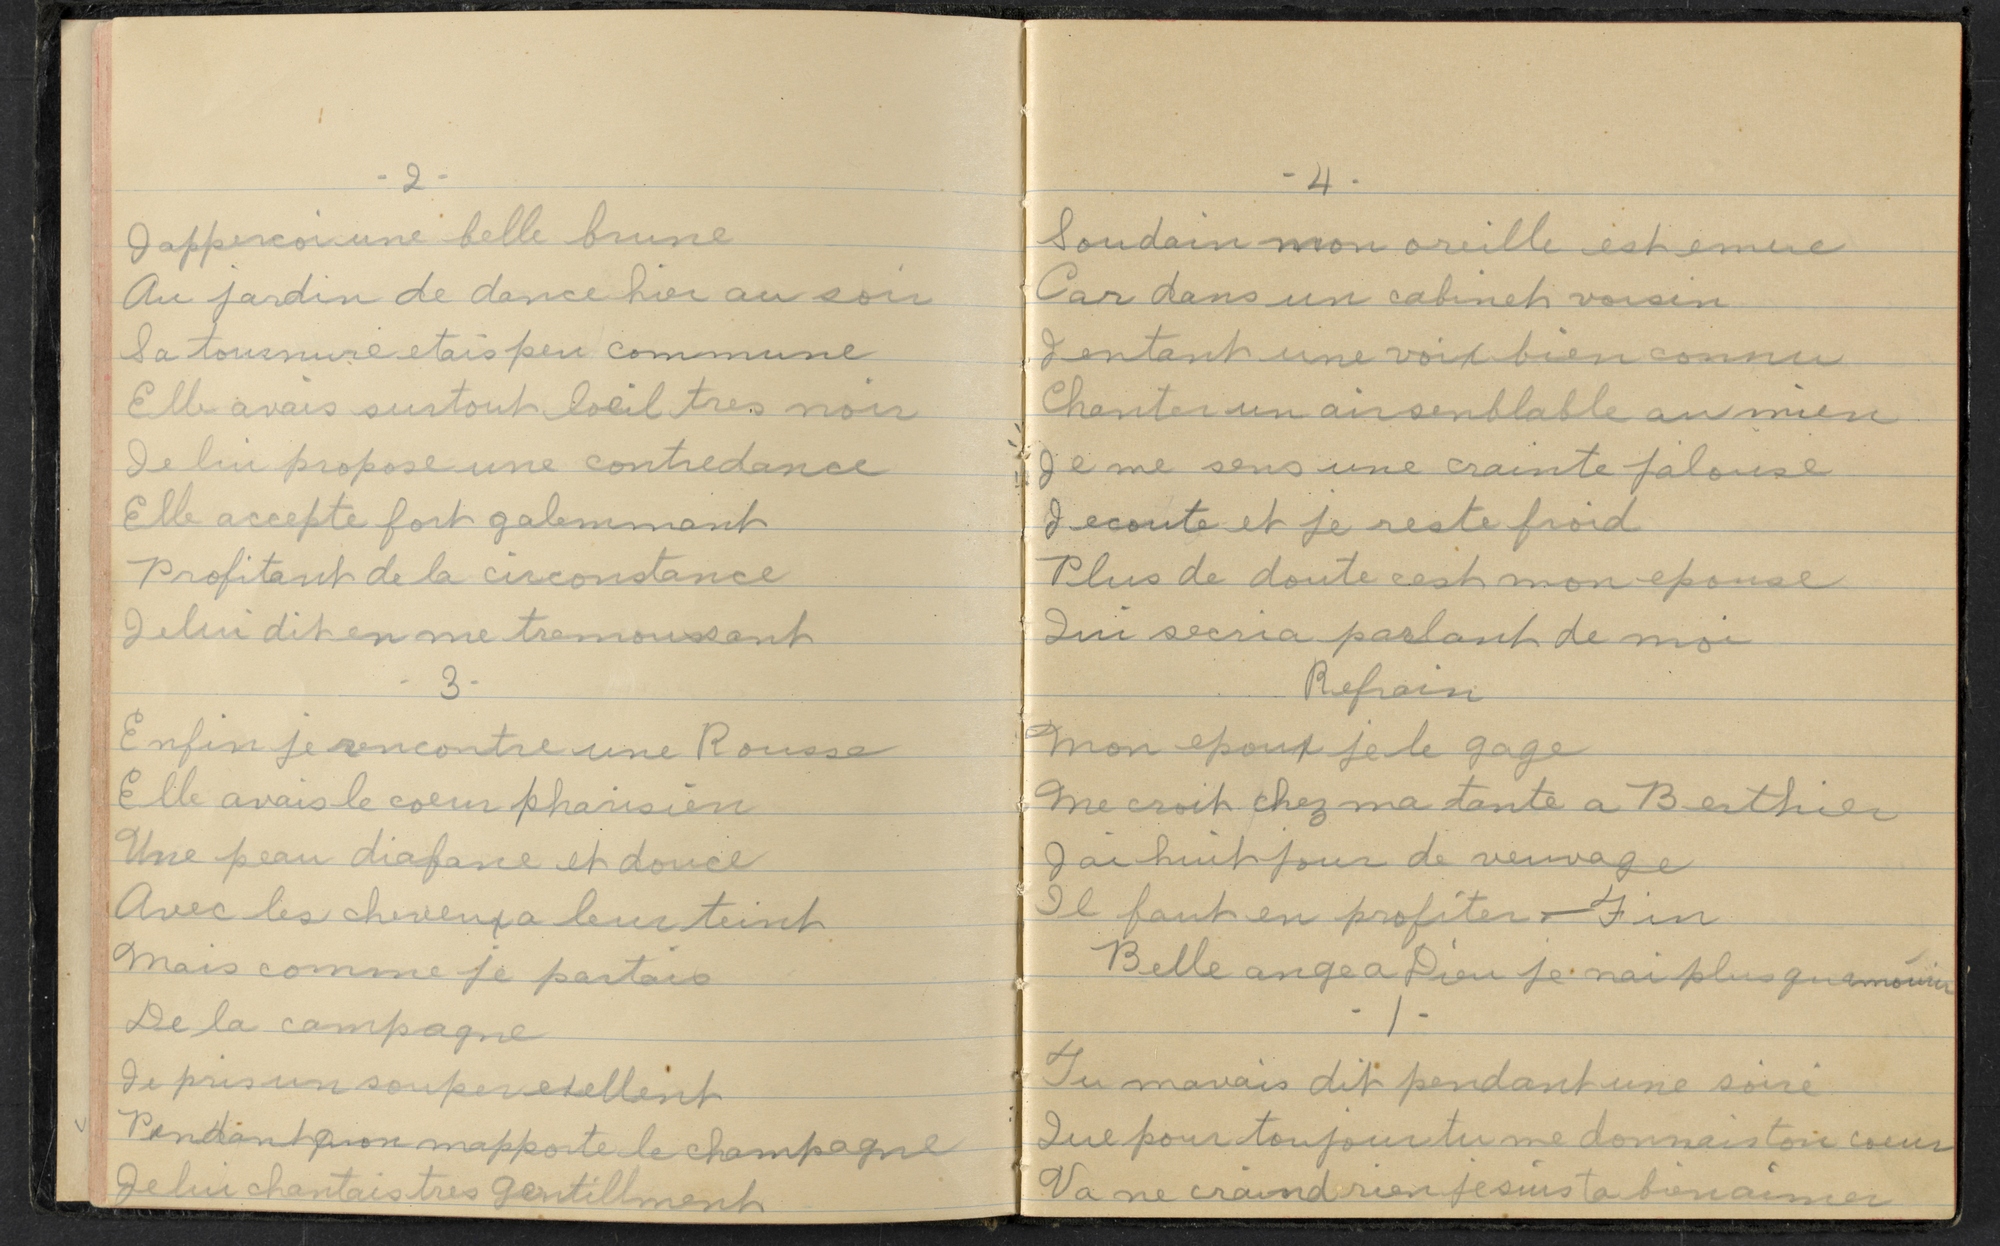 - 2 -
Jappercoi une belle brune
Au jardin de dance hier au soir
Sa tournure etais peu commune
Elle avais surtout loeil tres noir
Je lui propose une contredance
Elle accepte fort galemmant
Profitant de la circonstance
Je lui dit en me tremoussant
- 3 -
Enfin je rencontre une Rousse
Elle avais le coeur pharisien
Une peau diafane et douce
Avec les cheveux a leur teint
Mais comme je partais
De la campagne
Je pris un souper exellent
Pendant quon mapporte le champagne
Je lui chantais tres gentillment
- 4 -
Soudain mon oreille est emue
Car dans un cabinet voisin
Jentant une voix bien connu
Chanter un air senblable au mien
Je me sens une crainte jalouse
Jecoute et je reste froid
Plus de doute cest mon epouse
Qui secria parlant de moi
Refrain
Mon epoux je le gage
Me croit chez ma tante a Berthier
Jai huit jour de veuvage
Il faut en profiter — Fin
Belle ange a Dieu je nai plus qua mourir
- 1 -
Tu mavais dit pendant une soiré
Que pour toujour tu me donnais ton coeur
Va ne craind rien je suis ta bien aimer